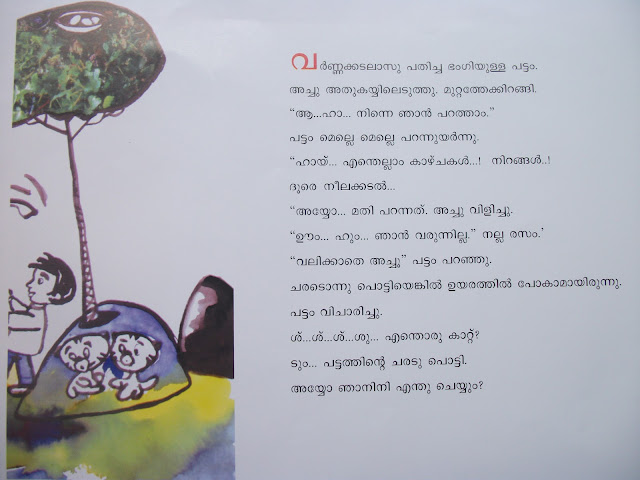 വർണ്ണക്കടലാസു പതിച്ച ഭംഗിയുള്ള പട്ടം.
അച്ചു അതുകയ്യിലെടുത്തു. മുറ്റത്തേക്കിറങ്ങി.
“ആ...ഹാ... നിന്നെ ഞാൻ പറത്താം.”
പട്ടം മെല്ലെ മെല്ലെ പറന്നുയർന്നു.
“ഹായ്... എന്തെല്ലാം കാഴ്ചകൾ...! നിറങ്ങൾ..!
ദൂരെ നീലക്കടൽ...
“അയ്യോ... മതി പറന്നത്. അച്ചു വിളിച്ചു.
“ഊം... ഹും... ഞാൻ വരുന്നില്ല.” നല്ല രസം.’
“വലിക്കാതെ അച്ചൂ” പട്ടം പറഞ്ഞു.
ചരടൊന്നു പൊട്ടിയെങ്കിൽ ഉയരത്തിൽ പോകാമായിരുന്നു.
പട്ടം വിചാരിച്ചു.
ശ്...ശ്...ശ്...ശൂ... എന്തൊരു കാറ്റ്?
ടും... പട്ടത്തിന്റെ ചരടു പൊട്ടി.
അയ്യോ ഞാനിനി എന്തു ചെയ്യും?